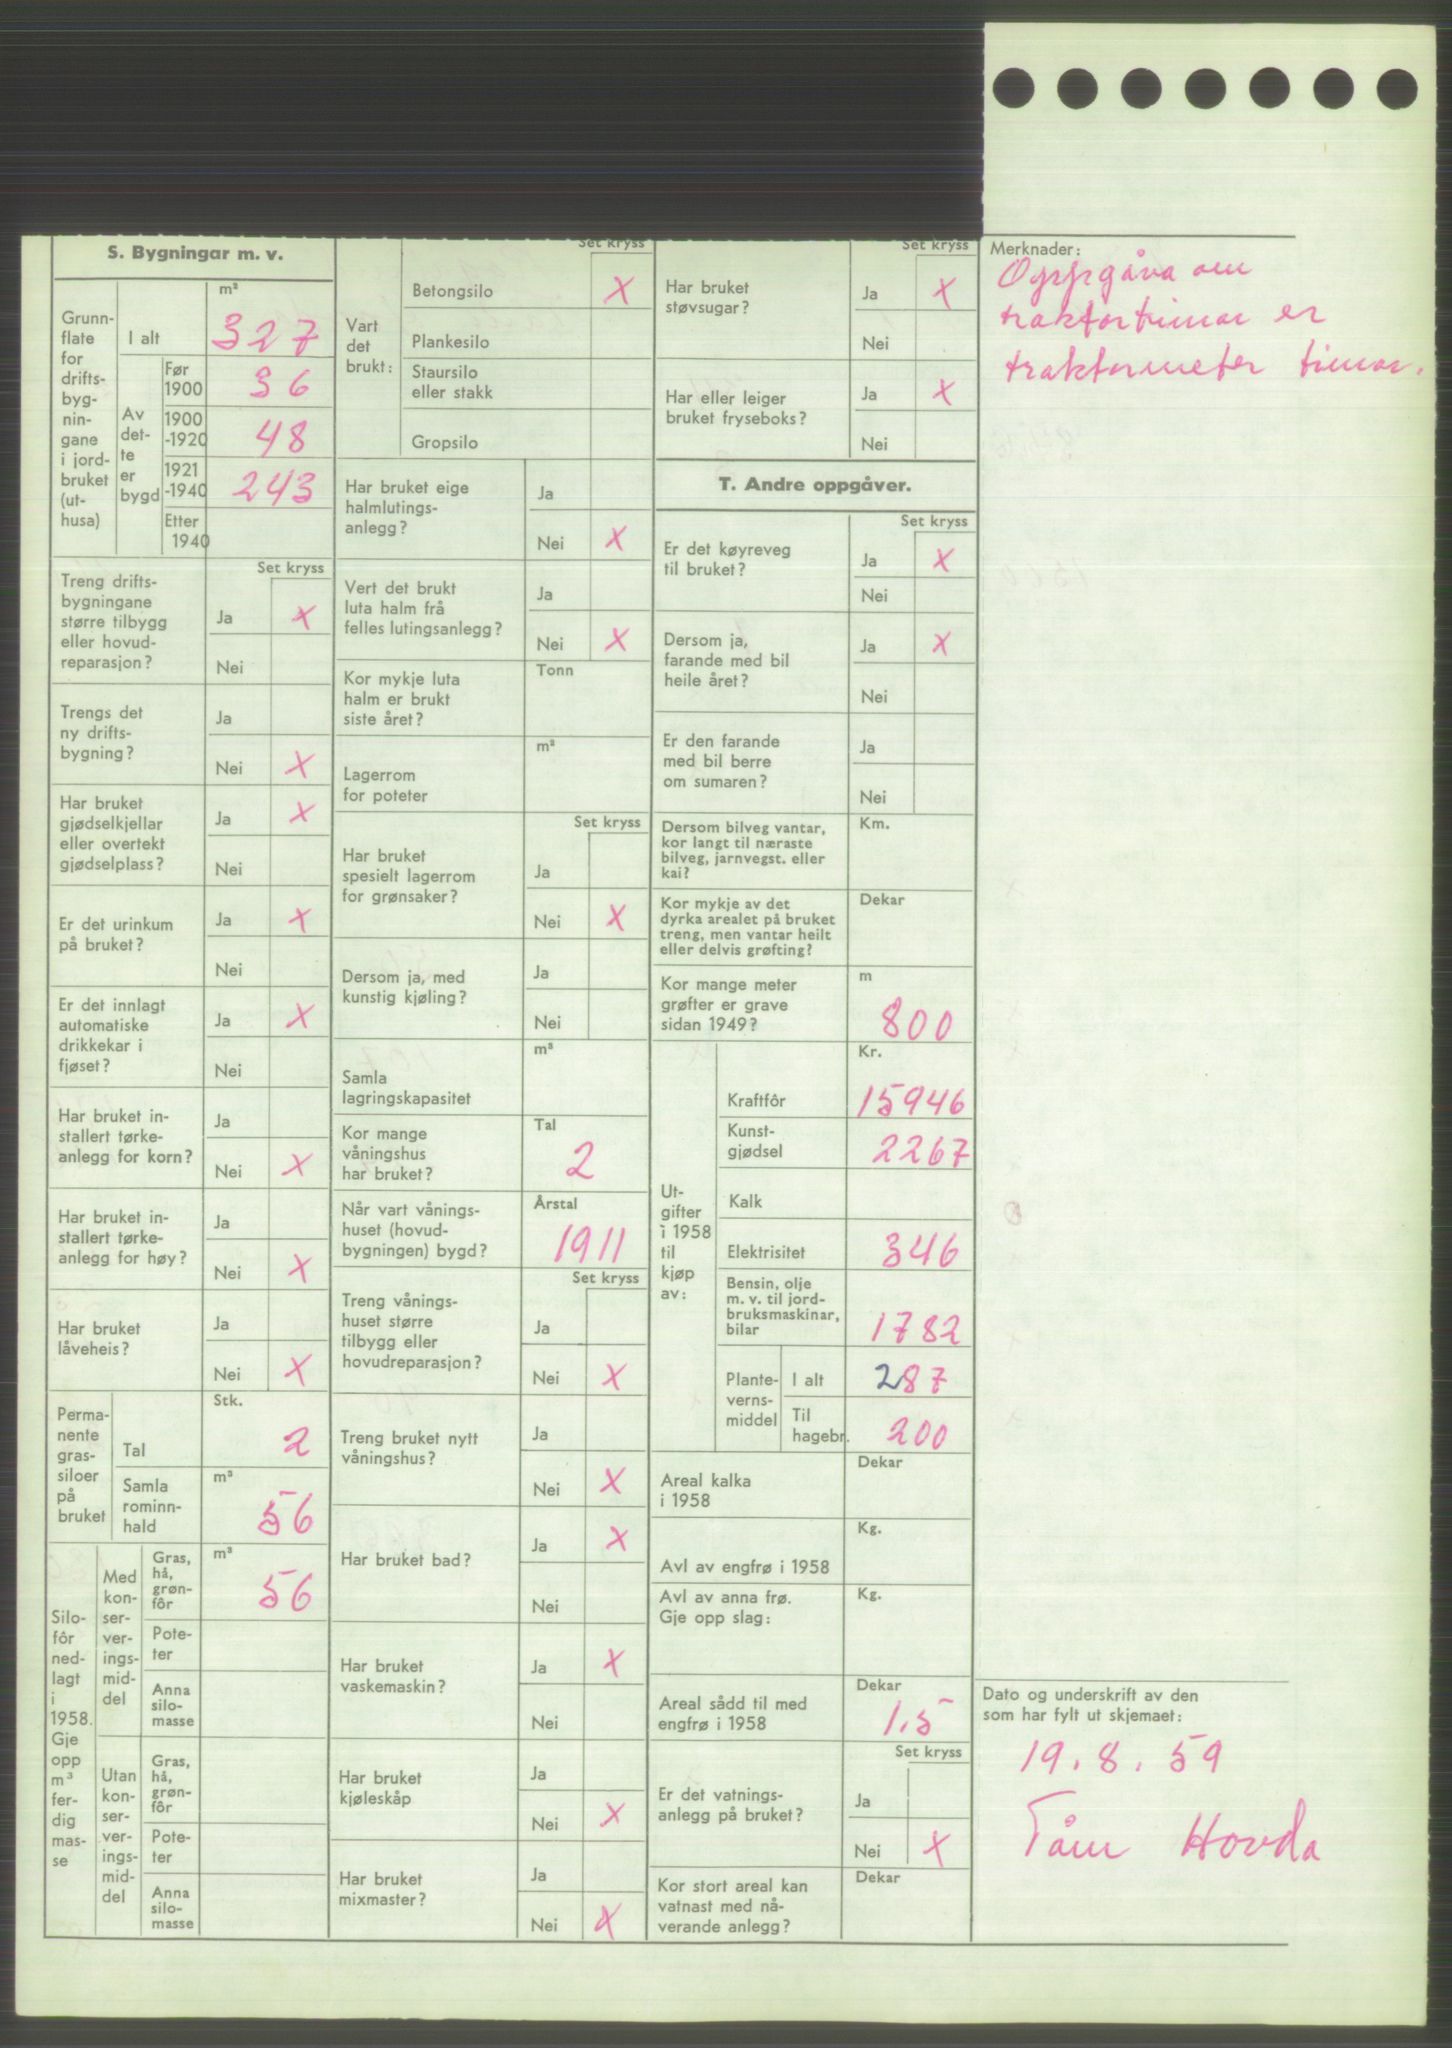 S. Bygningar m. v.
Grunn-
flate
for
drifts-
byg-
nin-
gane
i jord-
bruket
(ut-
husa)
m²
I alt 327
Av
det-
te
er
bygd
Før
1900 36
1900
-1920 48
1921
-1940 243
Etter
1940
Set kryss
Treng drifts-
bygningane
større tilbygg
eller hovud-
reparasjon?
Ja X
Nei
Trengs det
ny drifts-
bygning?
Ja
Nei X
Har bruket
gjødselkjellar
eller overtekt
gjødselplass?
Ja X
Nei
Er det urinkum
på bruket?
Ja X
Nei
Er det innlagt
automatiske
drikkekar i
fjøset?
Ja X
Nei
Har bruket in-
stallert tørke-
anlegg for korn?
Ja
Nei X
Har bruket in-
stallert tørke-
anlegg for høy?
Ja
Nei X
Har bruket
låveheis?
Ja
Nei X
Perma-
nente
gras-
siloer
på
bruket
Stk.
Tal 2
m³
Samla
rominn-
hald
56
Silo-
fôr
ned-
lagt
i
1958.
Gje
opp
m³
fer-
dig
mas-
se
Med
kon-
ser-
ver-
ings-
mid-
del
m³
Gras,
hå,
grøn-
fôr
56
Pote-
ter
Anna
silo-
masse
Utan
kon-
ser-
ver-
ings-
mid-
del
Gras,
hå,
grøn-
fôr
Pote-
ter
Anna
silo-
masse
Vart
det
brukt:
Set kryss
Betongsilo X
Plankesilo
Staursilo
eller stakk
Gropsilo
Har bruket eige
halmlutings-
anlegg?
Ja
Nei X
Vert det brukt
luta halm frå
felles lutingsanlegg?
Ja
Nei X
Kor mykje luta
halm er brukt
siste året?
Tonn
Lagerrom
for poteter
m²
Set kryss
Har bruket
spesielt lagerrom
for grønsaker?
Ja
Nei X
Dersom ja, med
kunstig kjøling?
Ja
Nei
Samla
lagringskapasitet
m³
Kor mange
våningshus
har bruket?
Tal
2
Når vart vånings-
huset (hovud-
bygningen) bygd?
Årstal
1911
Set kryss
Treng vånings-
huset større
tilbygg eller
hovudreparasjon?
Ja
Nei X
Treng bruket nytt
våningshus?
Ja
Nei X
Har bruket bad?
Ja X
Nei
Har bruket
vaskemaskin?
Ja X
Nei
Har bruket
kjøleskåp
Ja
Nei X
Har bruket
mixmaster?
Ja
Nei X
Set kryss
Har bruket
støvsugar?
Ja X
Nei
Har eller leiger
bruket fryseboks?
Ja X
Nei
T. Andre oppgåver.
Set kryss
Er det køyreveg
til bruket?
Ja X
Nei
Dersom ja,
farande med bil
heile året?
Ja X
Nei
Er den farande
med bil berre
om sumaren?
Ja
Nei
Dersom bilveg vantar,
kor langt til næraste
bilveg, jarnvegst. eller
kai?
Km.
Kor mykje av det
dyrka arealet på bruket
treng, men vantar heilt
eller delvis grøfting?
Dekar
Kor mange meter
grøfter er grave
sidan 1949?
m
800
Ut-
gifter
i 1958
til
kjøp
av:
Kr.
Kraftfôr 15946
Kunst-
gjødsel 2267
Kalk
Elektrisitet 346
Bensin, olje
m. v. til jord-
bruksmaskinar,
bilar
1782
Plante-
verns-
middel
I alt 287
Til
hagebr. 200
Areal kalka
i 1958
Dekar
Avl av engfrø i 1958
Kg.
Avl av anna frø.
Gje opp slag:
Kg.
Areal sådd til med
engfrø i 1958
Dekar
1,5
Set kryss
Er det vatnings-
anlegg på bruket?
Ja
Nei X
Kor stort areal kan
vatnast med nå-
verande anlegg?
Dekar
Merknader:
Oppgåva om
traktortimar er
traktormeter timar.
Dato og underskrift av den
som har fylt ut skjemaet:
19. 8. 59
Tåm Hovda